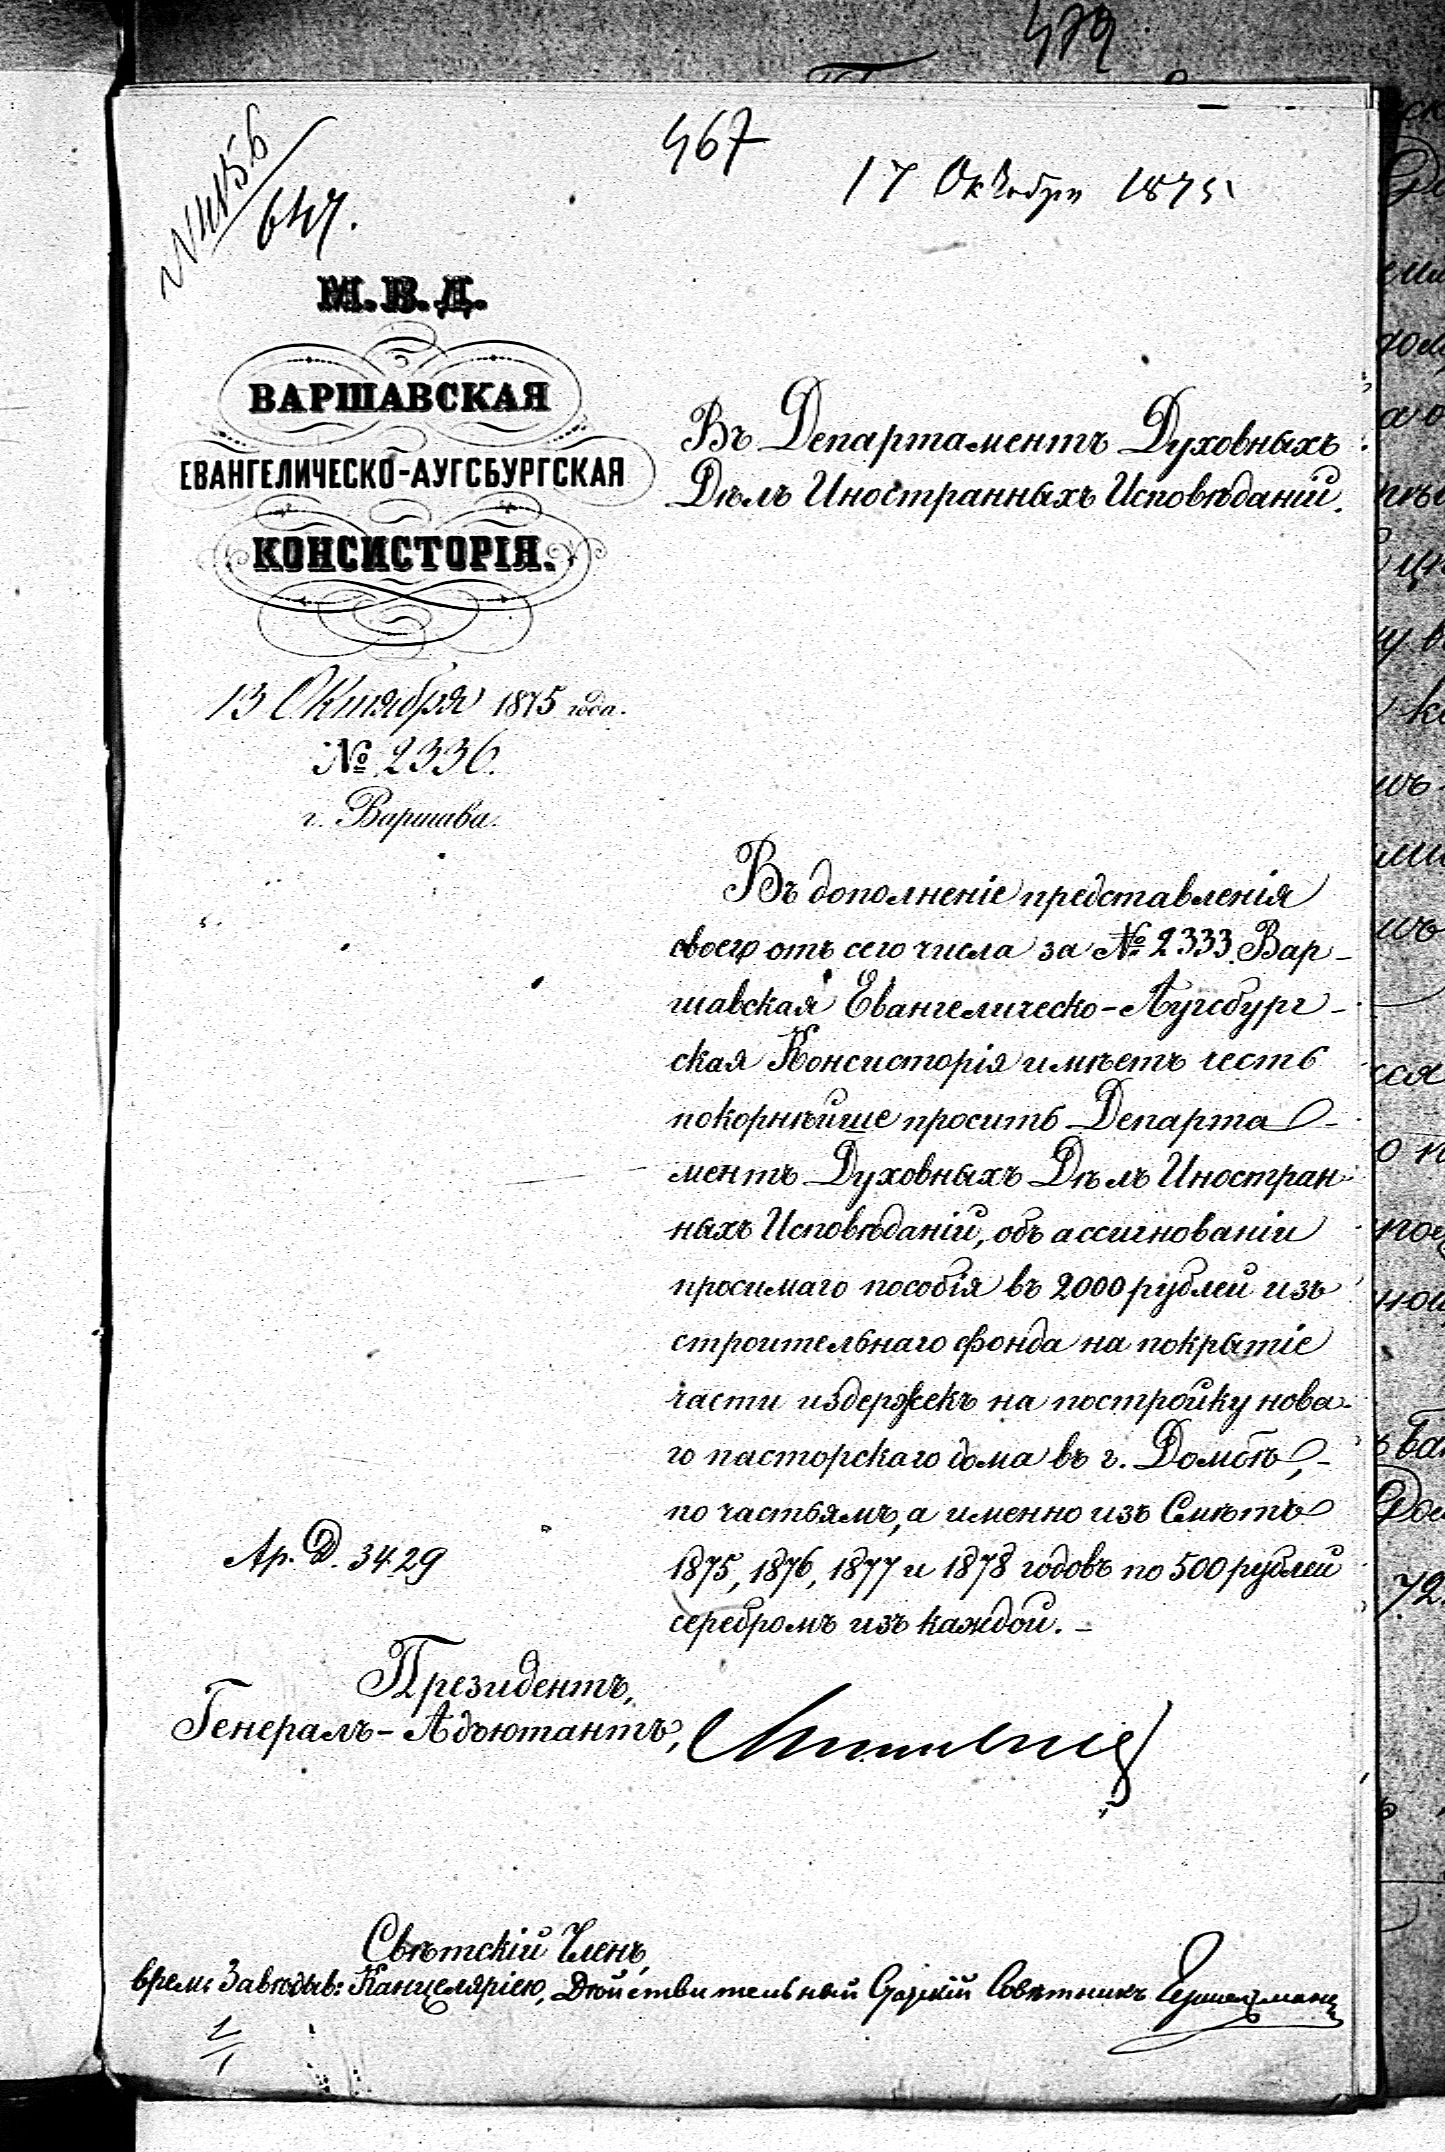 479
467
17 Октября 1875
№ 4156
647.
М. В. Д.
ВАРШАВСКАЯ
ЕВАНГЕЛИЧЕСКО-АУГСБУРГСКАЯ
КОНСИСТОРІЯ.
13 Октября 1875 года.
№ 2336.
г. Варшава.
Въ Департаментъ Духовныхъ
Дѣлъ Иностранныхъ Исповѣданій.
Въ дополненіе представленія
своего отъ сего числа за № 2333. Вар-
шавская Евангелическо-Аугсбург-
ская Консисторія имѣетъ честь
покорнѣйше просить Департа-
ментъ Духовныхъ Дѣлъ Иностран
ныхъ Исповѣданій, объ ассигнованіи
просимаго пособія въ 2000 рублей изъ
строительнаго фонда на покрытіе
части издержекъ на постройку нова-
го пасторскаго дома въ г. Домбѣ,-
по частьямъ, а именно изъ Смѣтъ
1875, 1876, 1877 и 1878 годовъ по 500 рублей
серебромъ изъ каждой. -
Ар. D. 3429
Президентъ,
Генералъ-Адъютантъ,
Свѣтскій Членъ,
врем: Завѣдыв: Канцеляріею, Дѣйствительный Статскій Совѣтникъ